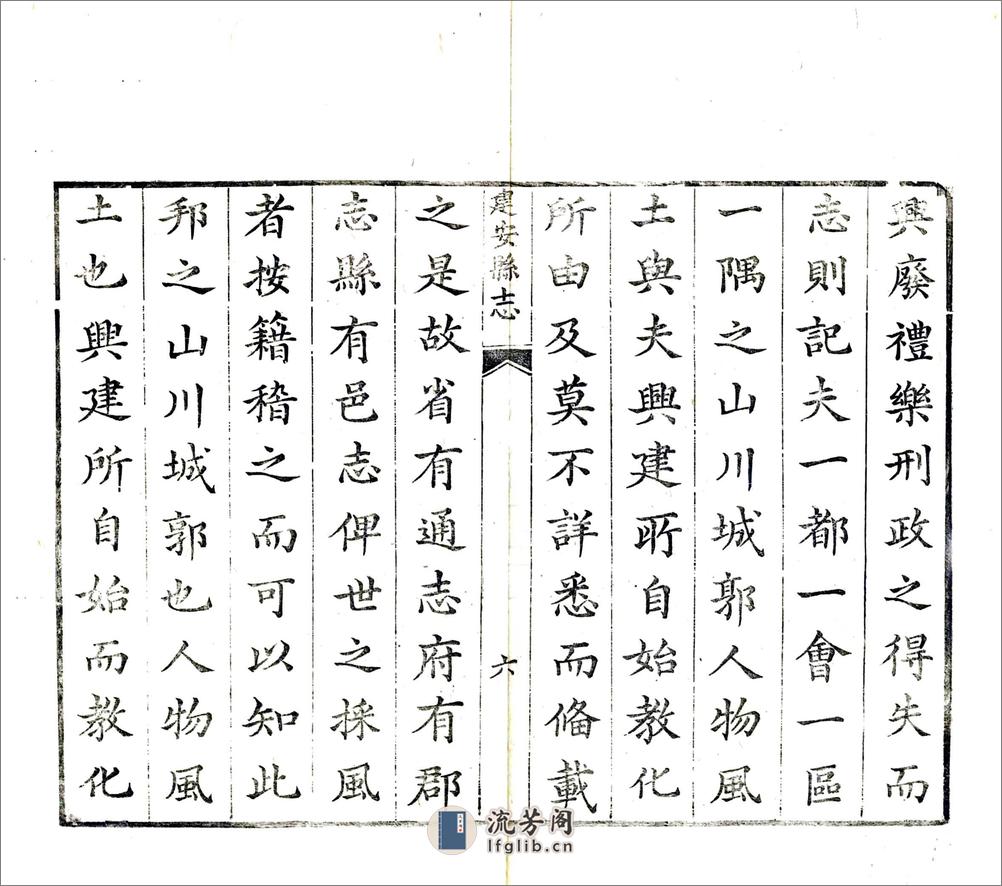 興廢禮樂刑政之得失而
志則記夫一都一會一區
一隅之山川城郭人物風
土與夫興建所自始教化
所由及莫不詳悉而俻載
建安縣志
六
之是故省有通志府有郡
志縣有邑志俾世之採風
者按籍稽之而可以知此
邦之山川城郭也人物風
土也興建所自始而教化
流芳阁
lfglib.cn